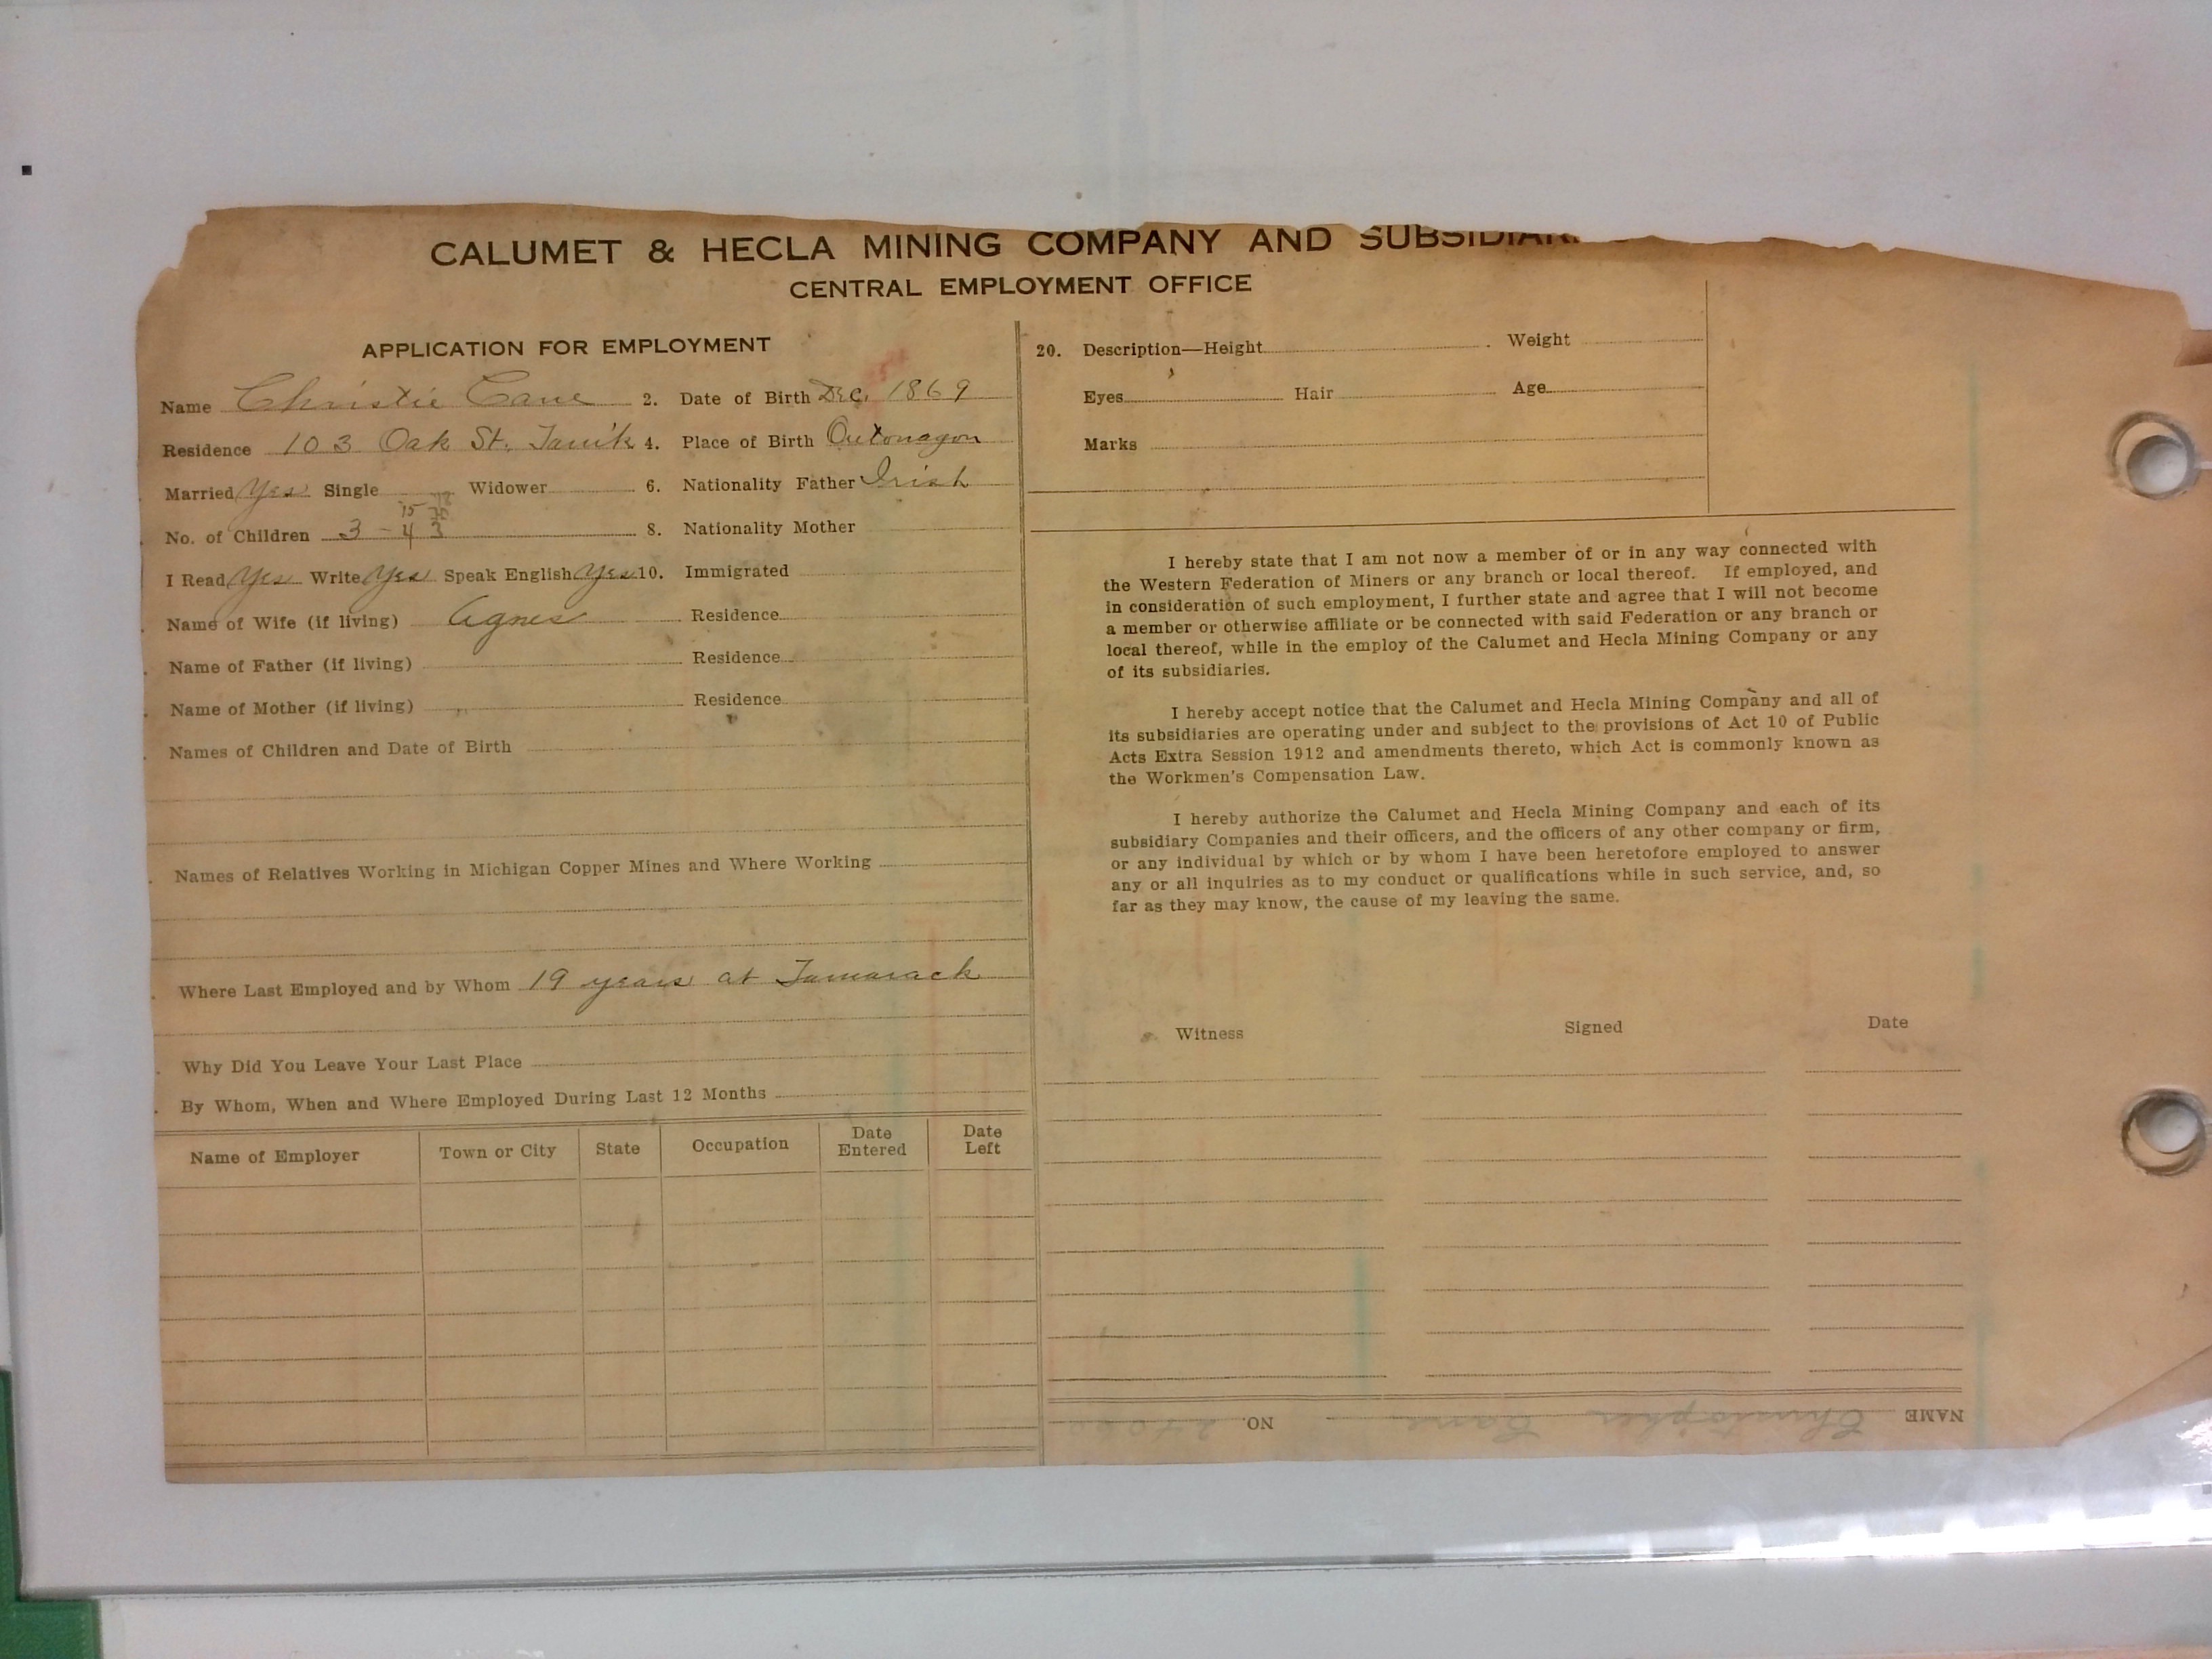 CALUMET & HECLA MINING COMPANY AND SUBSIDIARIES
CENTRAL EMPLOYMENT OFFICE
APPLICATION FOR EMPLOYMENT
Name Christie Cane 2. Date of Birth Dec. 1869
Residence 103 Oak St. 4. Place of Birth Ontonagon
Married Yes Single Widower 6. Nationality Father Irish
No. of Children 3 - 4 3 8. Nationality Mother
I Read Yes Write Yes Speak English Yes 10. Immigrated
Name of Wife (if living) Agnes Residence
Name of Father (if living) Residence
Name of Mother (if living) Residence
Names of Children and Date of Birth
Names of Relatives Working in Michigan Copper Mines and Where Working
Where Last Employed and by Whom 19 years at Tamarack
Why Did You Leave Your Last Place
By Whom, When and Where Employed During Last 12 Months
Name of Employer Town or City State Occupation Date Entered Date Left
20. Description—Height Weight
Eyes Hair Age
Marks
I hereby state that I am not now a member of or in any way connected with
the Western Federation of Miners or any branch or local thereof. If employed, and
in consideration of such employment, I further state and agree that I will not become
a member or otherwise affiliate or be connected with said Federation or any branch or
local thereof, while in the employ of the Calumet and Hecla Mining Company or any
of its subsidiaries.
I hereby accept notice that the Calumet and Hecla Mining Company and all of
its subsidiaries are operating under and subject to the provisions of Act 10 of Public
Acts Extra Session 1912 and amendments thereto, which Act is commonly known as
the Workmen's Compensation Law.
I hereby authorize the Calumet and Hecla Mining Company and each of its
subsidiary Companies and their officers, and the officers of any other company or firm,
or any individual by which or by whom I have been heretofore employed to answer
any or all inquiries as to my conduct or qualifications while in such service, and, so
far as they may know, the cause of my leaving the same.
Witness Signed Date
NAME Christopher Cane NO.